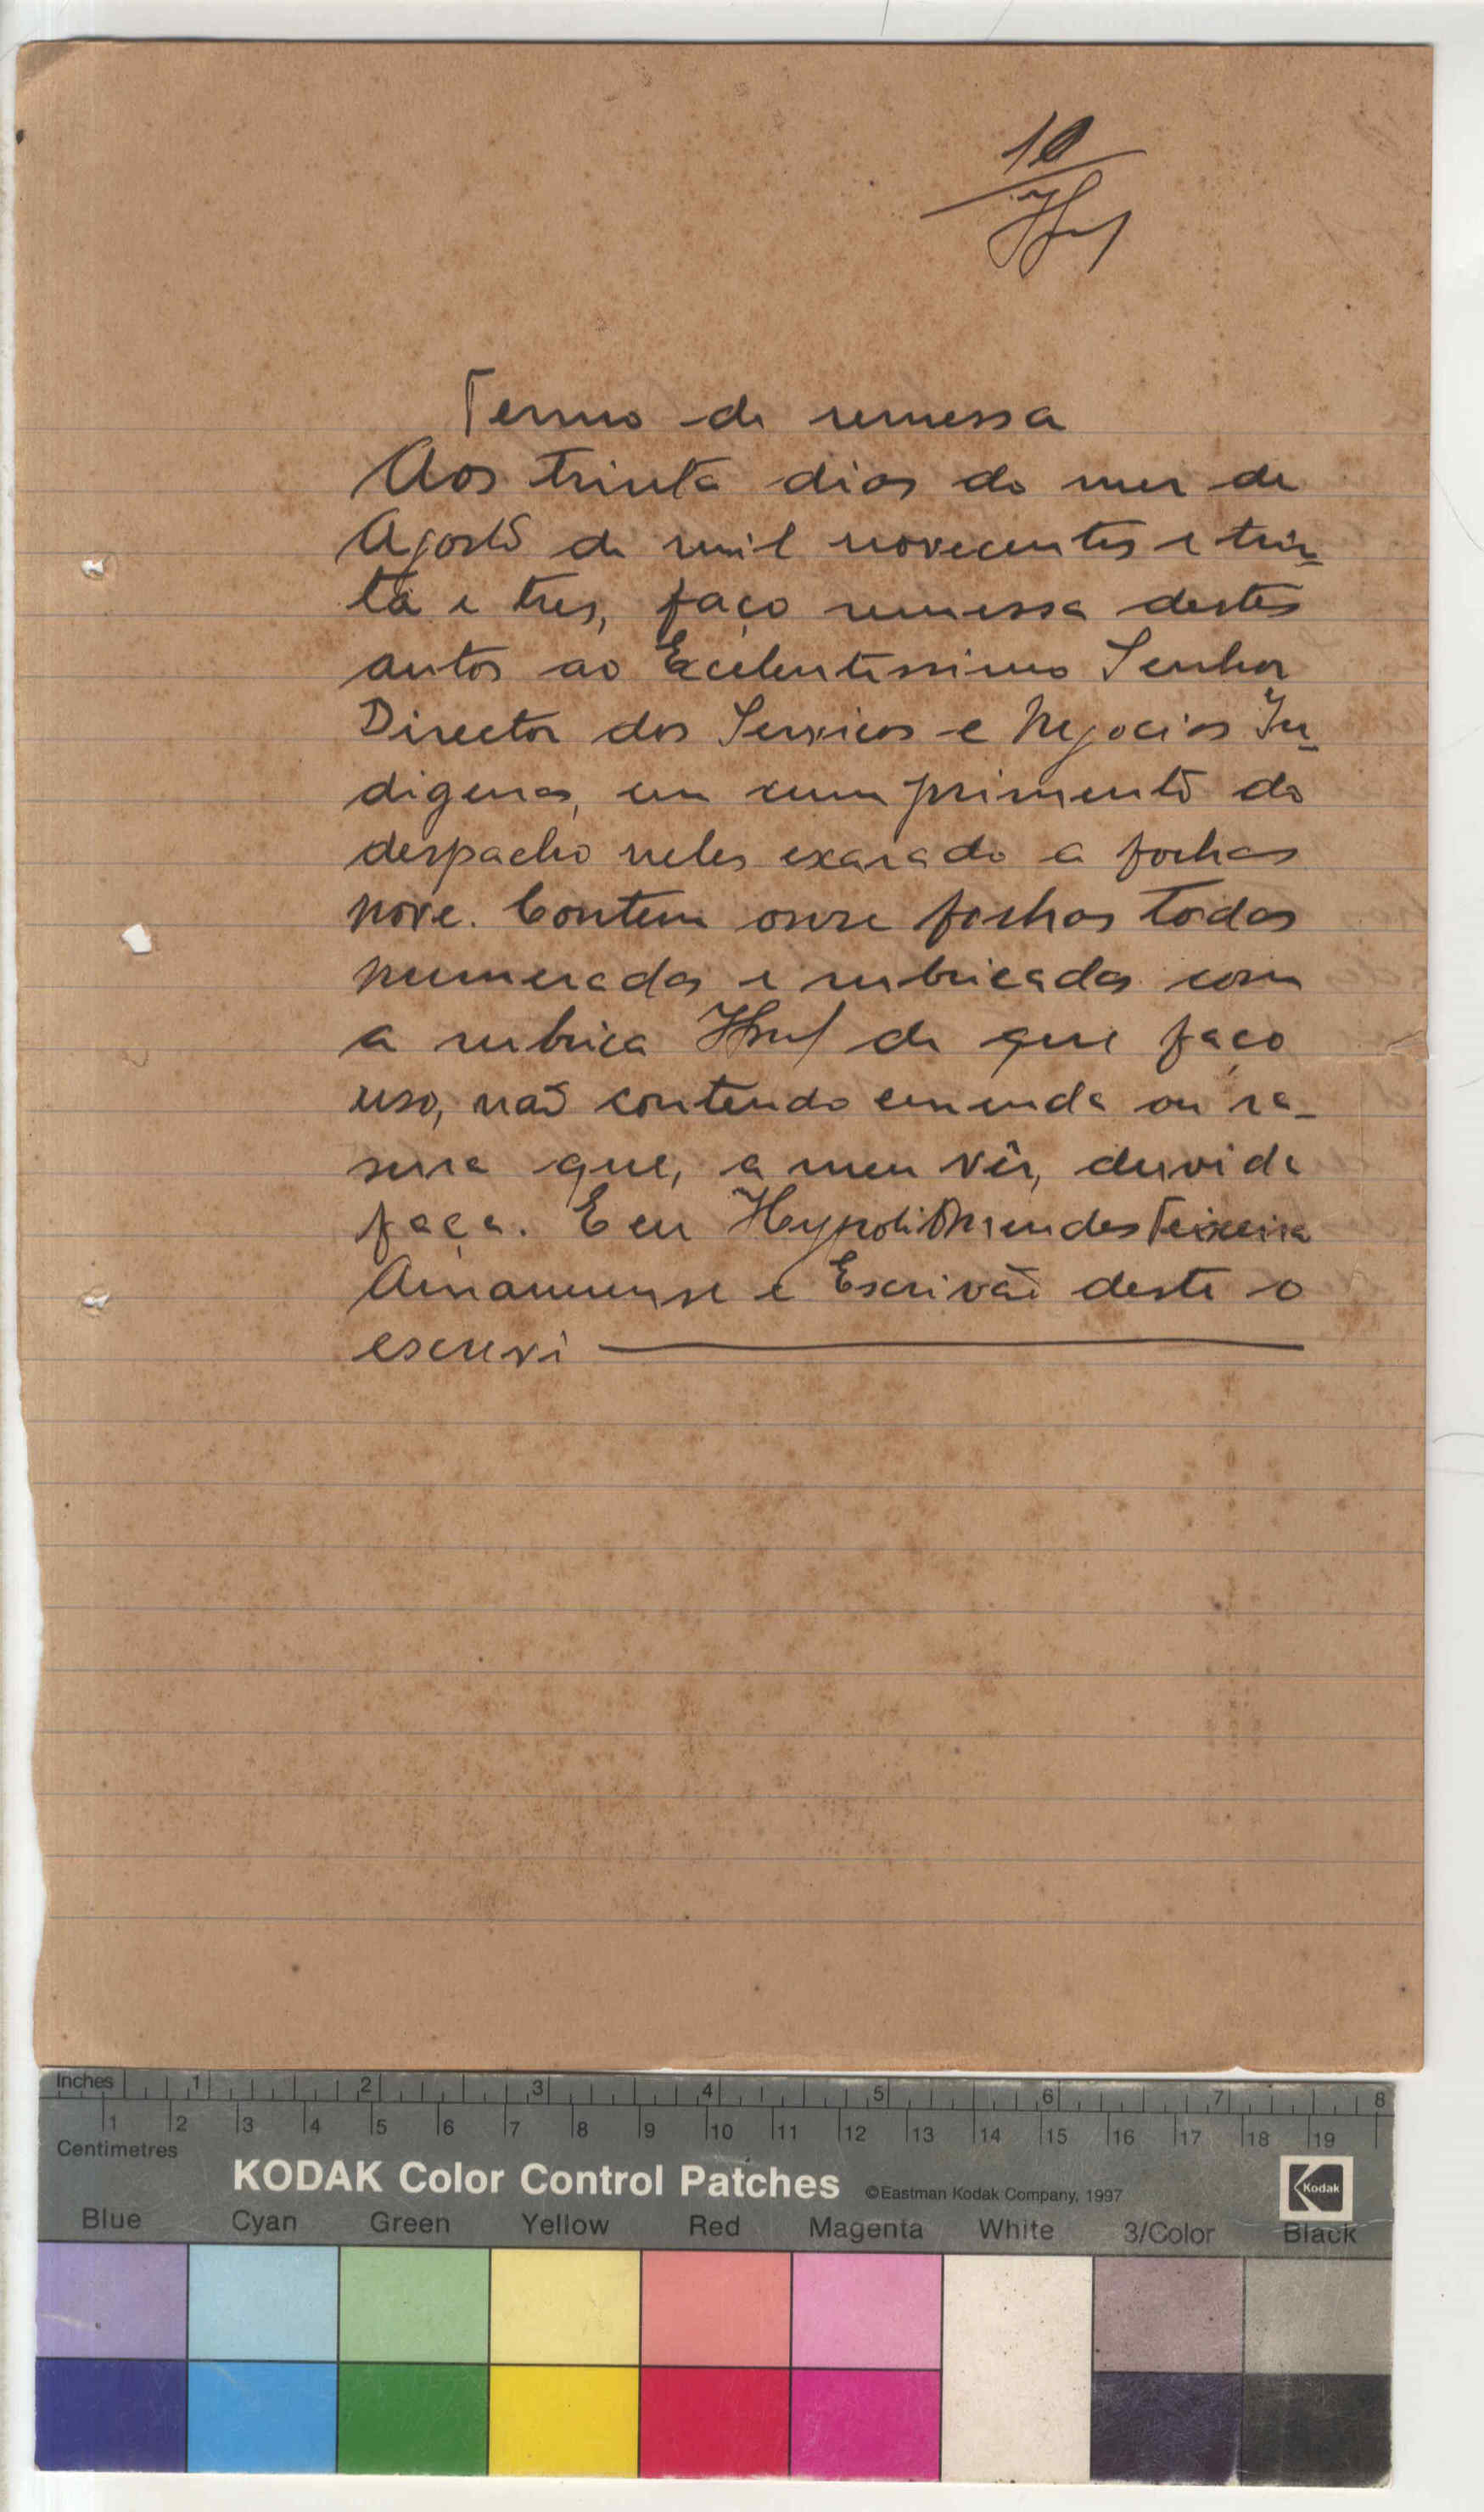 10
Termo de remessa
Aos trinta dias do mez de
Agosto de mil novecentos e trin-
ta e tres, faço remessa destes
autos ao Excelentissimo Senhor
Director dos Servicos e Negocios In-
digenas, em cumprimento do
despacho neles exarado a folhas
nove. Contem onze folhas todas
numeradas e rubricadas com
a rubrica de que faço
uso, não contendo emenda ou ra-
sura que, a meu vêr, duvida
faça. E eu Hypolito Mendes Teixeira
Amanuense e Escrivão deste o
escrevi
Inches 1 2 3 4 5 6 7 8
1 2 3 4 5 6 7 8 9 10 11 12 13 14 15 16 17 18 19
Centimetres
KODAK Color Control Patches ©Eastman Kodak Company, 1997 Kodak
Blue Cyan Green Yellow Red Magenta White 3/Color Black